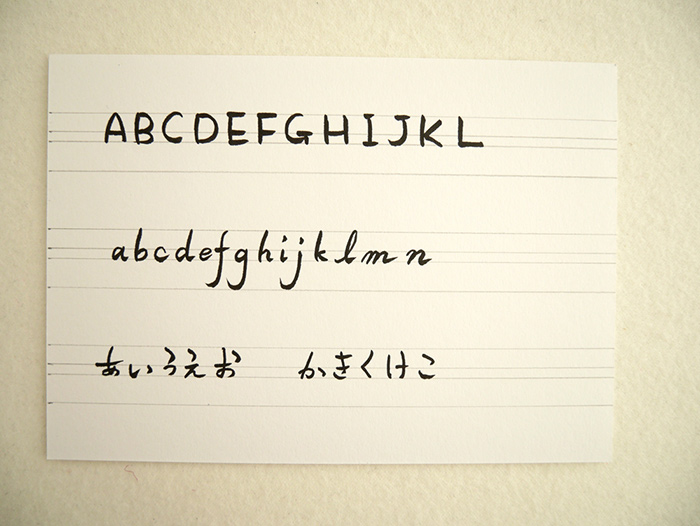 ABCDEFGHIJKL
abcdefghijklmn
あいうえお かきくけこ